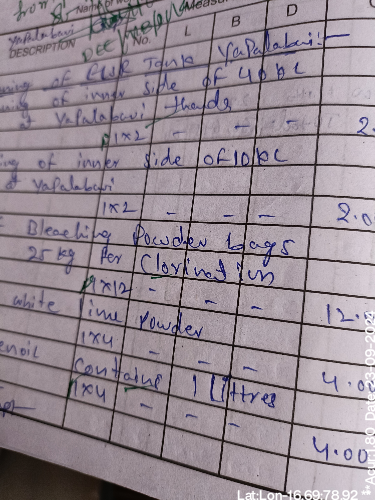 from
Name of work
Measure
Yapalabavi
DESCRIPTION No. L B D
ning of ELSR Tank Yapalabavi:-
ning of inner side of 40 KL
at Yapalabavi
1x2 - - - 2.
ing of inner side of 10 KL
at Yapalabavi
1x2 - - - 2.0
Bleaching Powder bags
25 kg Per Clorination
1x12 - - - 12.
white lime Powder
1x4 - - - 4.00
enoil Contains 1 Littres
1x4 - - - 4.00
Lat:Lon-16.69:78.92